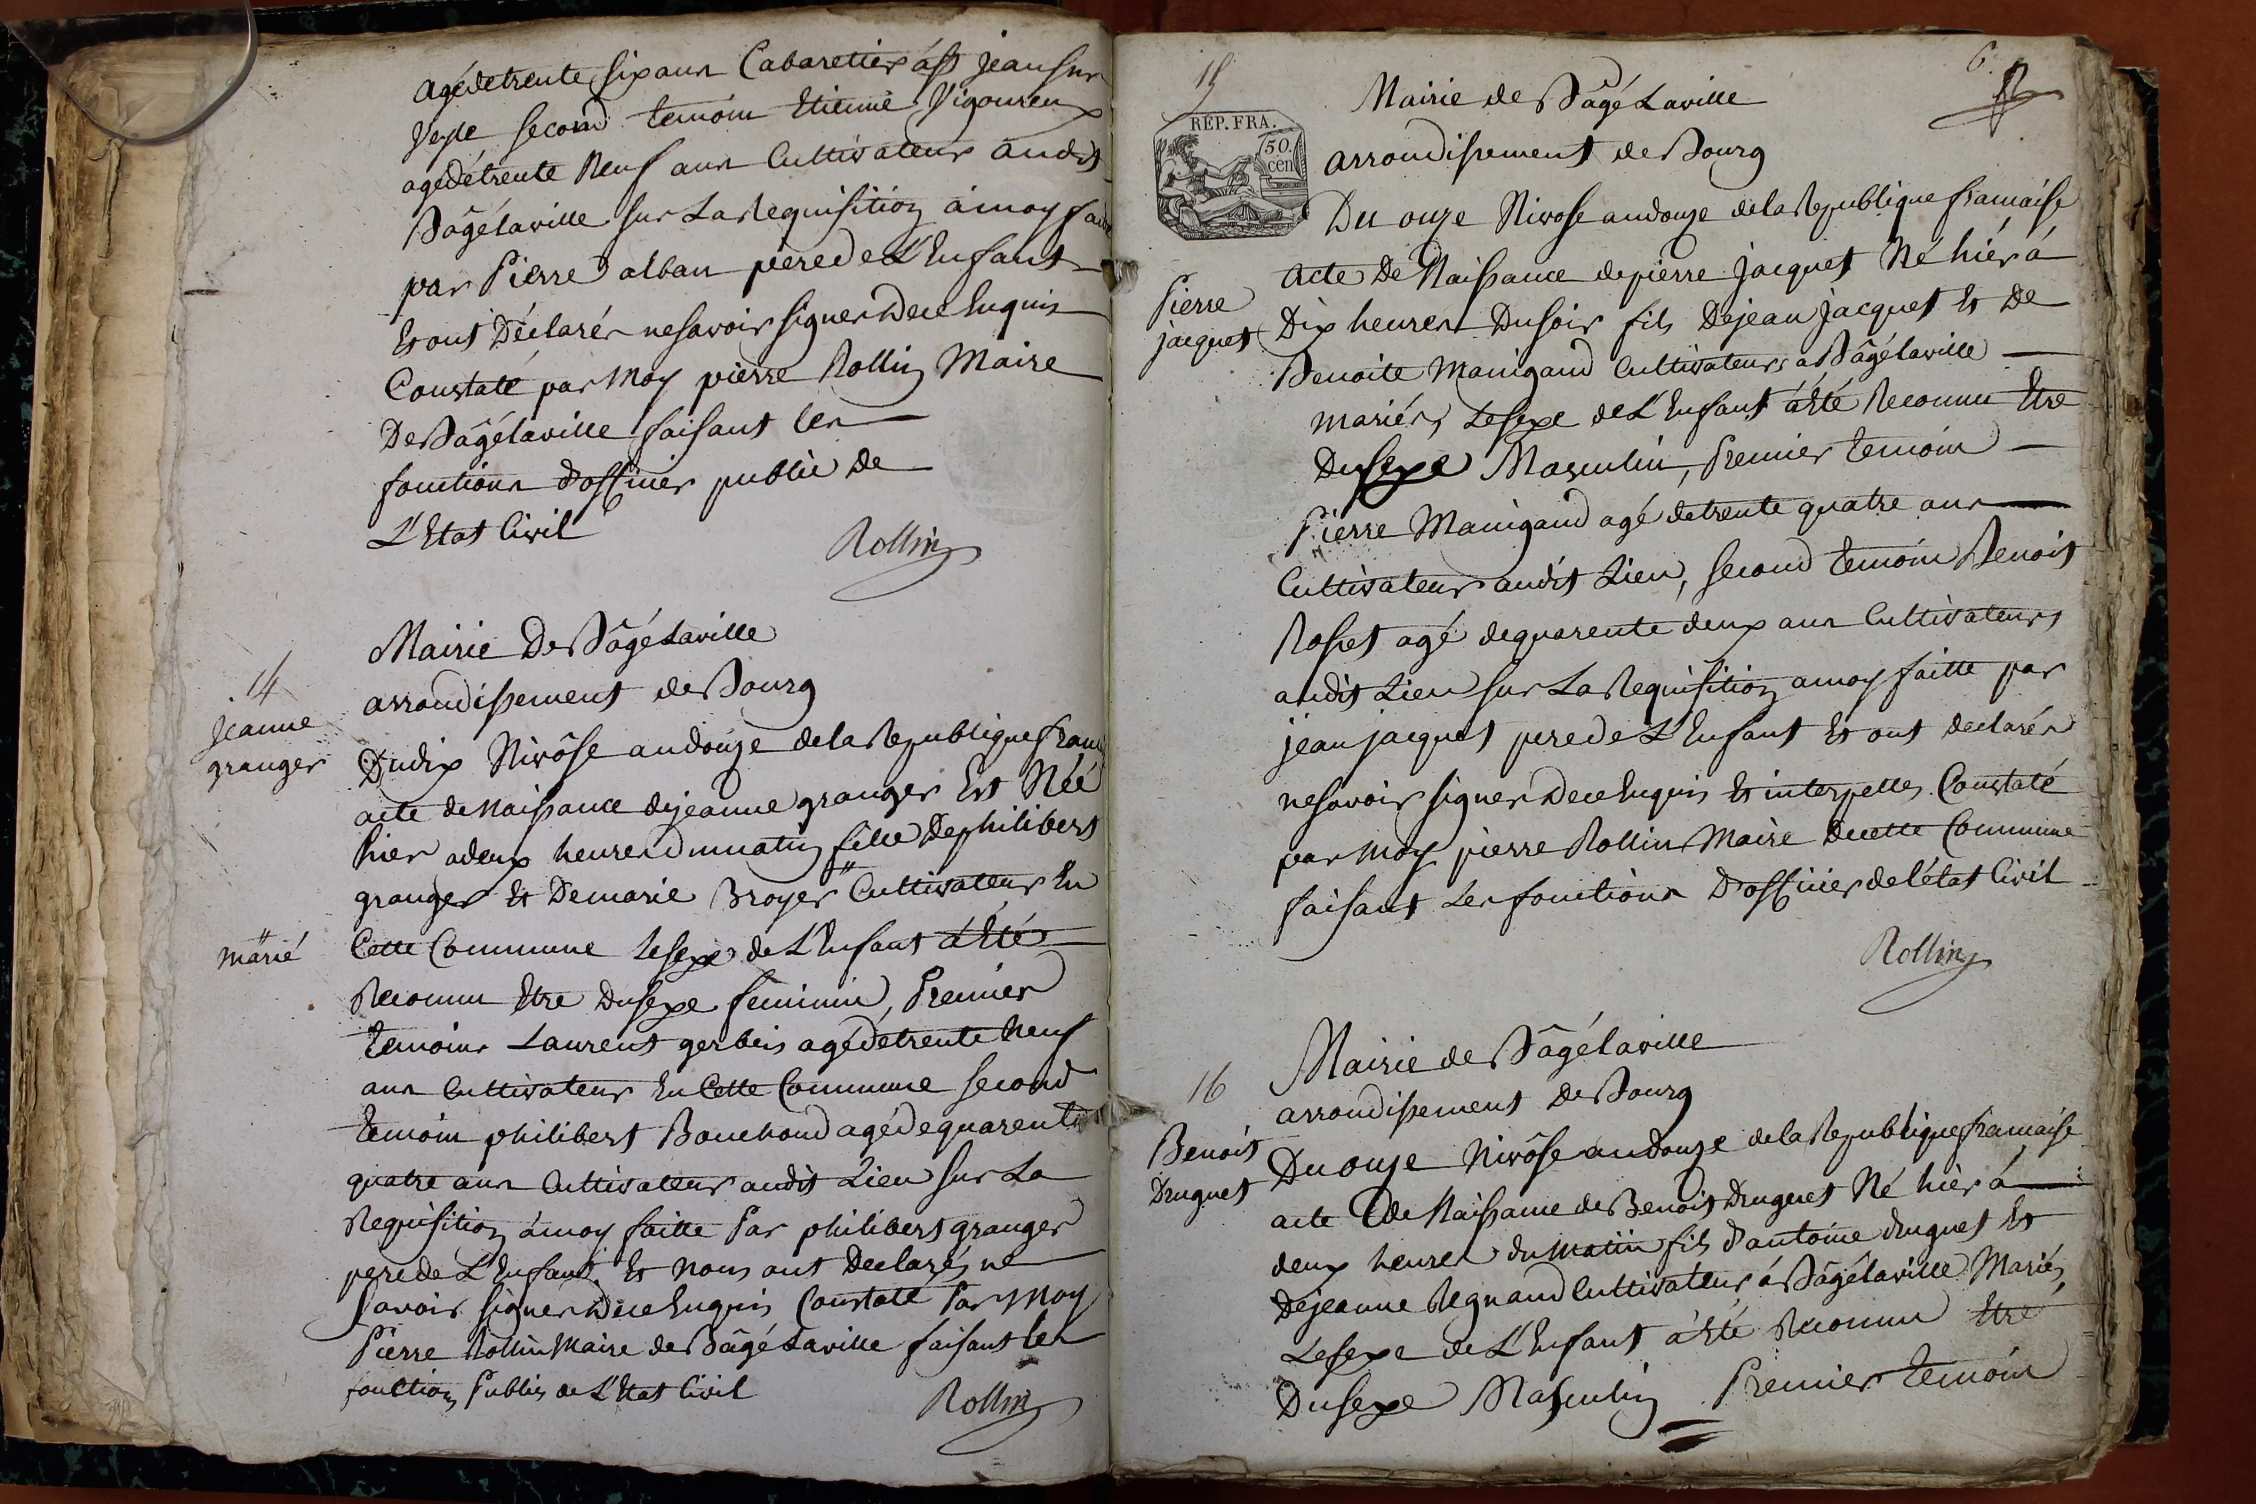 agé de trente six ans Cabaretier à St jean sur
Veyle second temoin Etienne Vigoureux
agé de trente Neuf ans Cultivateur audit
Bâgé laville sur La Requisition à moy faite
par Pierre alban pere de L'Enfant
Et ont Déclarés ne savoir signer de ce Enquis
Constaté par Moy pierre Rollin Maire
De Bâgé laville faisant les
fonctions d'officier public de
L'Etat Civil
Rollin
Mairie De Bâgé Laville
14
arrondissement de Bourg
jeanne
granger
Du dix Nivôse an douze de la Republique fran
acte de Naissance de jeanne granger Est Née
hier a deux heures du matin fille De philibert
granger Et De marie Broyer " Cultivateur En
" marié
Cette Commune Le sexe de L'Enfant à Eté
Reconnu Etre Du sexe feminin, Premier
temoins Laurent gerbeis agé de trente Neuf
ans Cultivateur En Cette Commune second
temoin philibert Bouchoud agé de quarente
quatre ans Cultivateur audit Lieu sur La
Requisition à moy faitte Par philibert granger
pere de L'Enfant. Et Nous ont Declarés ne
savoir signer de ce Enquis Constaté Par Moy
Pierre Rollin Maire de Bâgé Laville faisant les
fonction Public de L'Etat Civil
Rollin
15
6.
Mairie de Bâgé Laville
REP. FRA.
50.
cen
arrondissement de Bourg
Du onze Nivose an douze de la Republique francaise
Pierre
jacquet
acte De Naissance de pierre jacquet Né hièr à
Dix heures Du soir fils De jean jacquet Et De
Benoite Manigand Cultivateurs a Bâgé laville
mariés, Le sexe de L'Enfant à Eté Reconnu Etre
Du sexe Masculin, Premier temoin
Pierre Manigand agé de trente quatre ans
Cultivateur audit Lieu, second temoin Benoit
Rosset agé de quarente deux ans Cultivateurs
audit Lieu sur La Requisition a moy faitte par
jean jacquet pere de L'Enfant Et ont declarés
ne savoir signer de ce Enquis Et interpellés Constaté
par Moy pierre Rollin Maire De cette Commune
faisant Les fonctions D'officier de l'état Civil
Rollin
Mairie de Bâgé laville
16
arrondissement De Bourg
Benoit
Druguet
Du onze Nivôse an douze de la Republique francaise
acte De Naissance de Benoit Druguet Né hièr à
deux heures du matin fils d'antoine druguet Et
De jeanne Regnaud Cultivateur à Bâgé laville Mariés,
Le sexe de L'Enfant à Eté Reconnu Etre
Du sexe Masculin Premier temoin